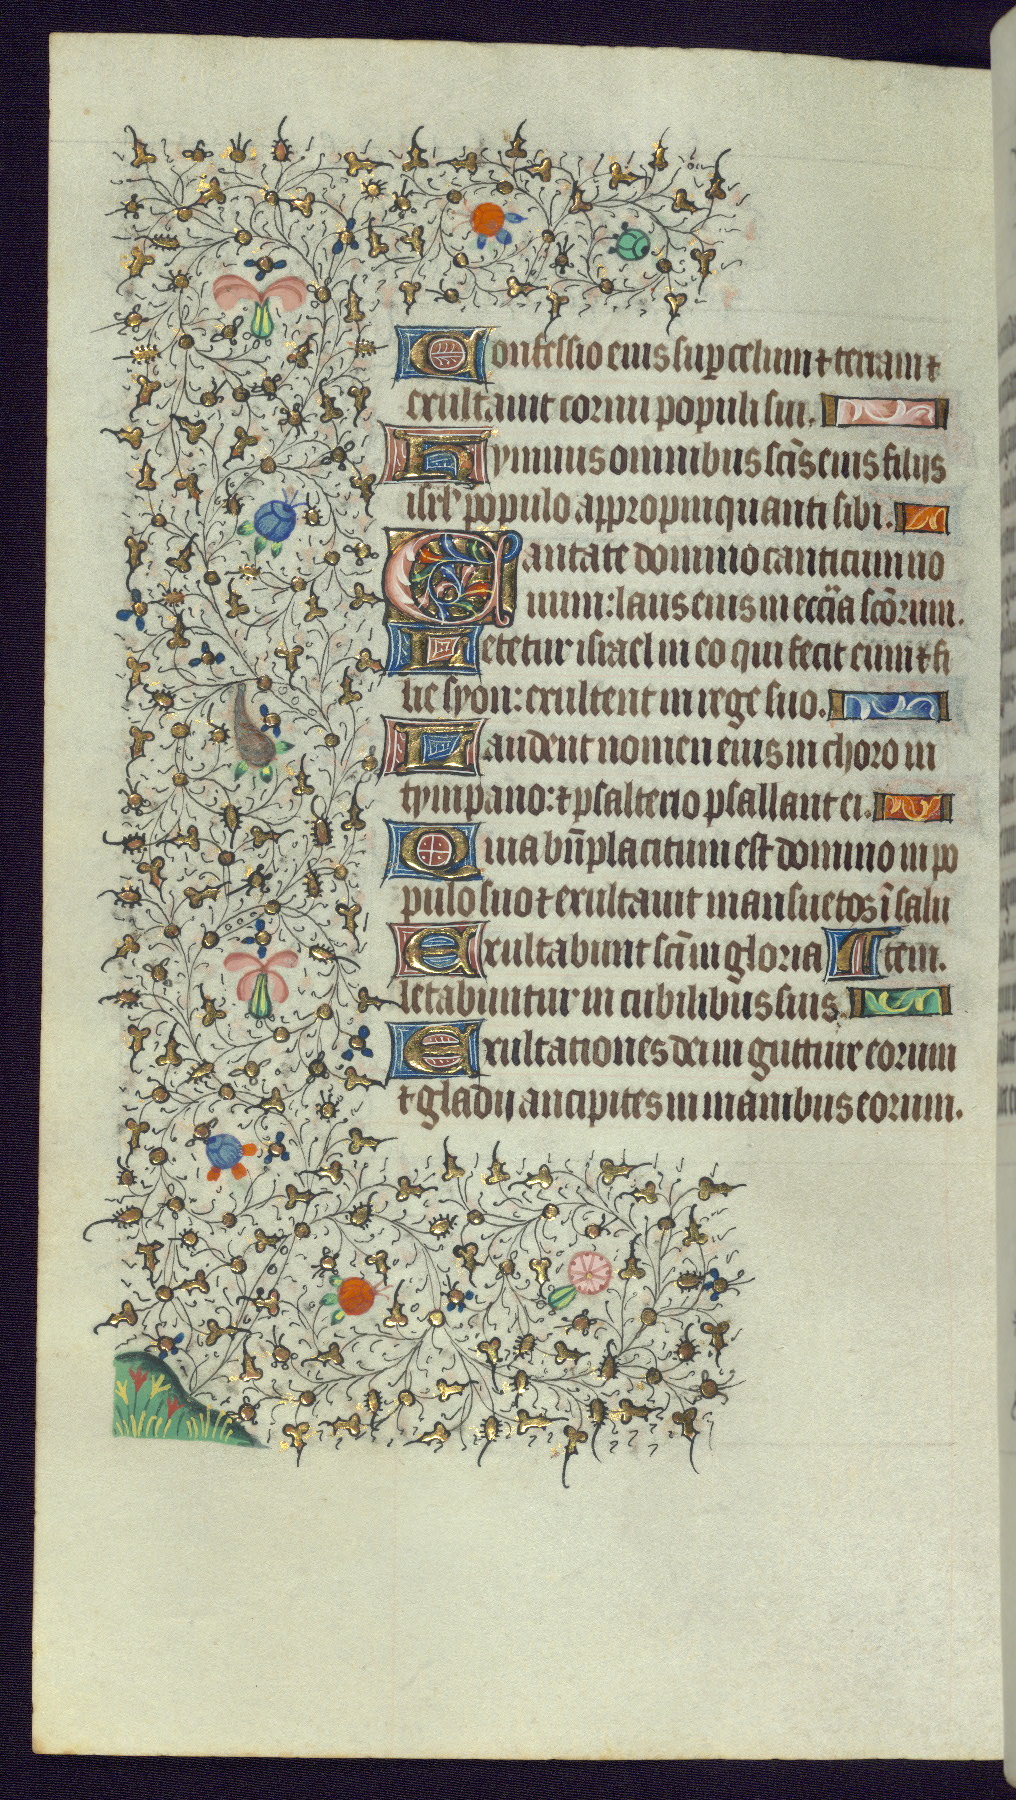 Confessio eius sup celum ⁊ terram ⁊
exultauit cornu populi sui.
Hymnus omnibus scīs eius filijs
isrl' populo appropinquanti sibi.
Cantate domino canticum no
uum: laus eius in eccīa scōrum.
Letetur israel in eo qui fecit eum ⁊ fi
lie syon: exultent in rege suo.
Laudent nomen eius in choro in
tympano: ⁊ psalterio psallant ei.
Quia bn̄placitum est domino in po
pulo suo ⁊ exultauit mansuetos ī salu
Exultabunt scī in gloria tem.
letabuntur in cubilibus suis.
Exultationes dei in gutture eorum
⁊ gladij ancipites in manibus eorum.